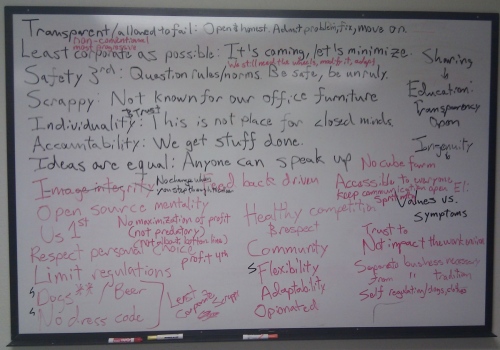 Transparent/allowed to fail: Open & honest. Admit problem, fix, move on.
non-conventional
most progressive
Least corporate as possible: It's coming, let's minimize.
We still need the wheels, modify it, adapt
Safety 3rd: Question rules/norms. Be safe, be unruly.
Scrappy: Not known for our office furniture
& trust
Individuality: This is not place for closed minds.
Accountability: We get stuff done.
Ideas are equal: Anyone can speak up
Sharing
Education:
Transparency
Open
Ingenuity
No cube farm
Image integrity
No change when
Feed back driven
Accessible to everyone
keep communication open
Open source mentality
Us 1st
No maximization of profit
(not predatory)
(not about bottom line)
profit 4th
Respect personal choice
Limit regulations
Dogs**
Beer
No dress code
Least
Corporate
Scrappy
Healthy competition
& respect
Community
Flexibility
Adaptability
Opionated
Values vs.
symptoms
Trust to
Not impact the work environ
Separate business reasons
from " tradition
Self regulation/dogs, clothes